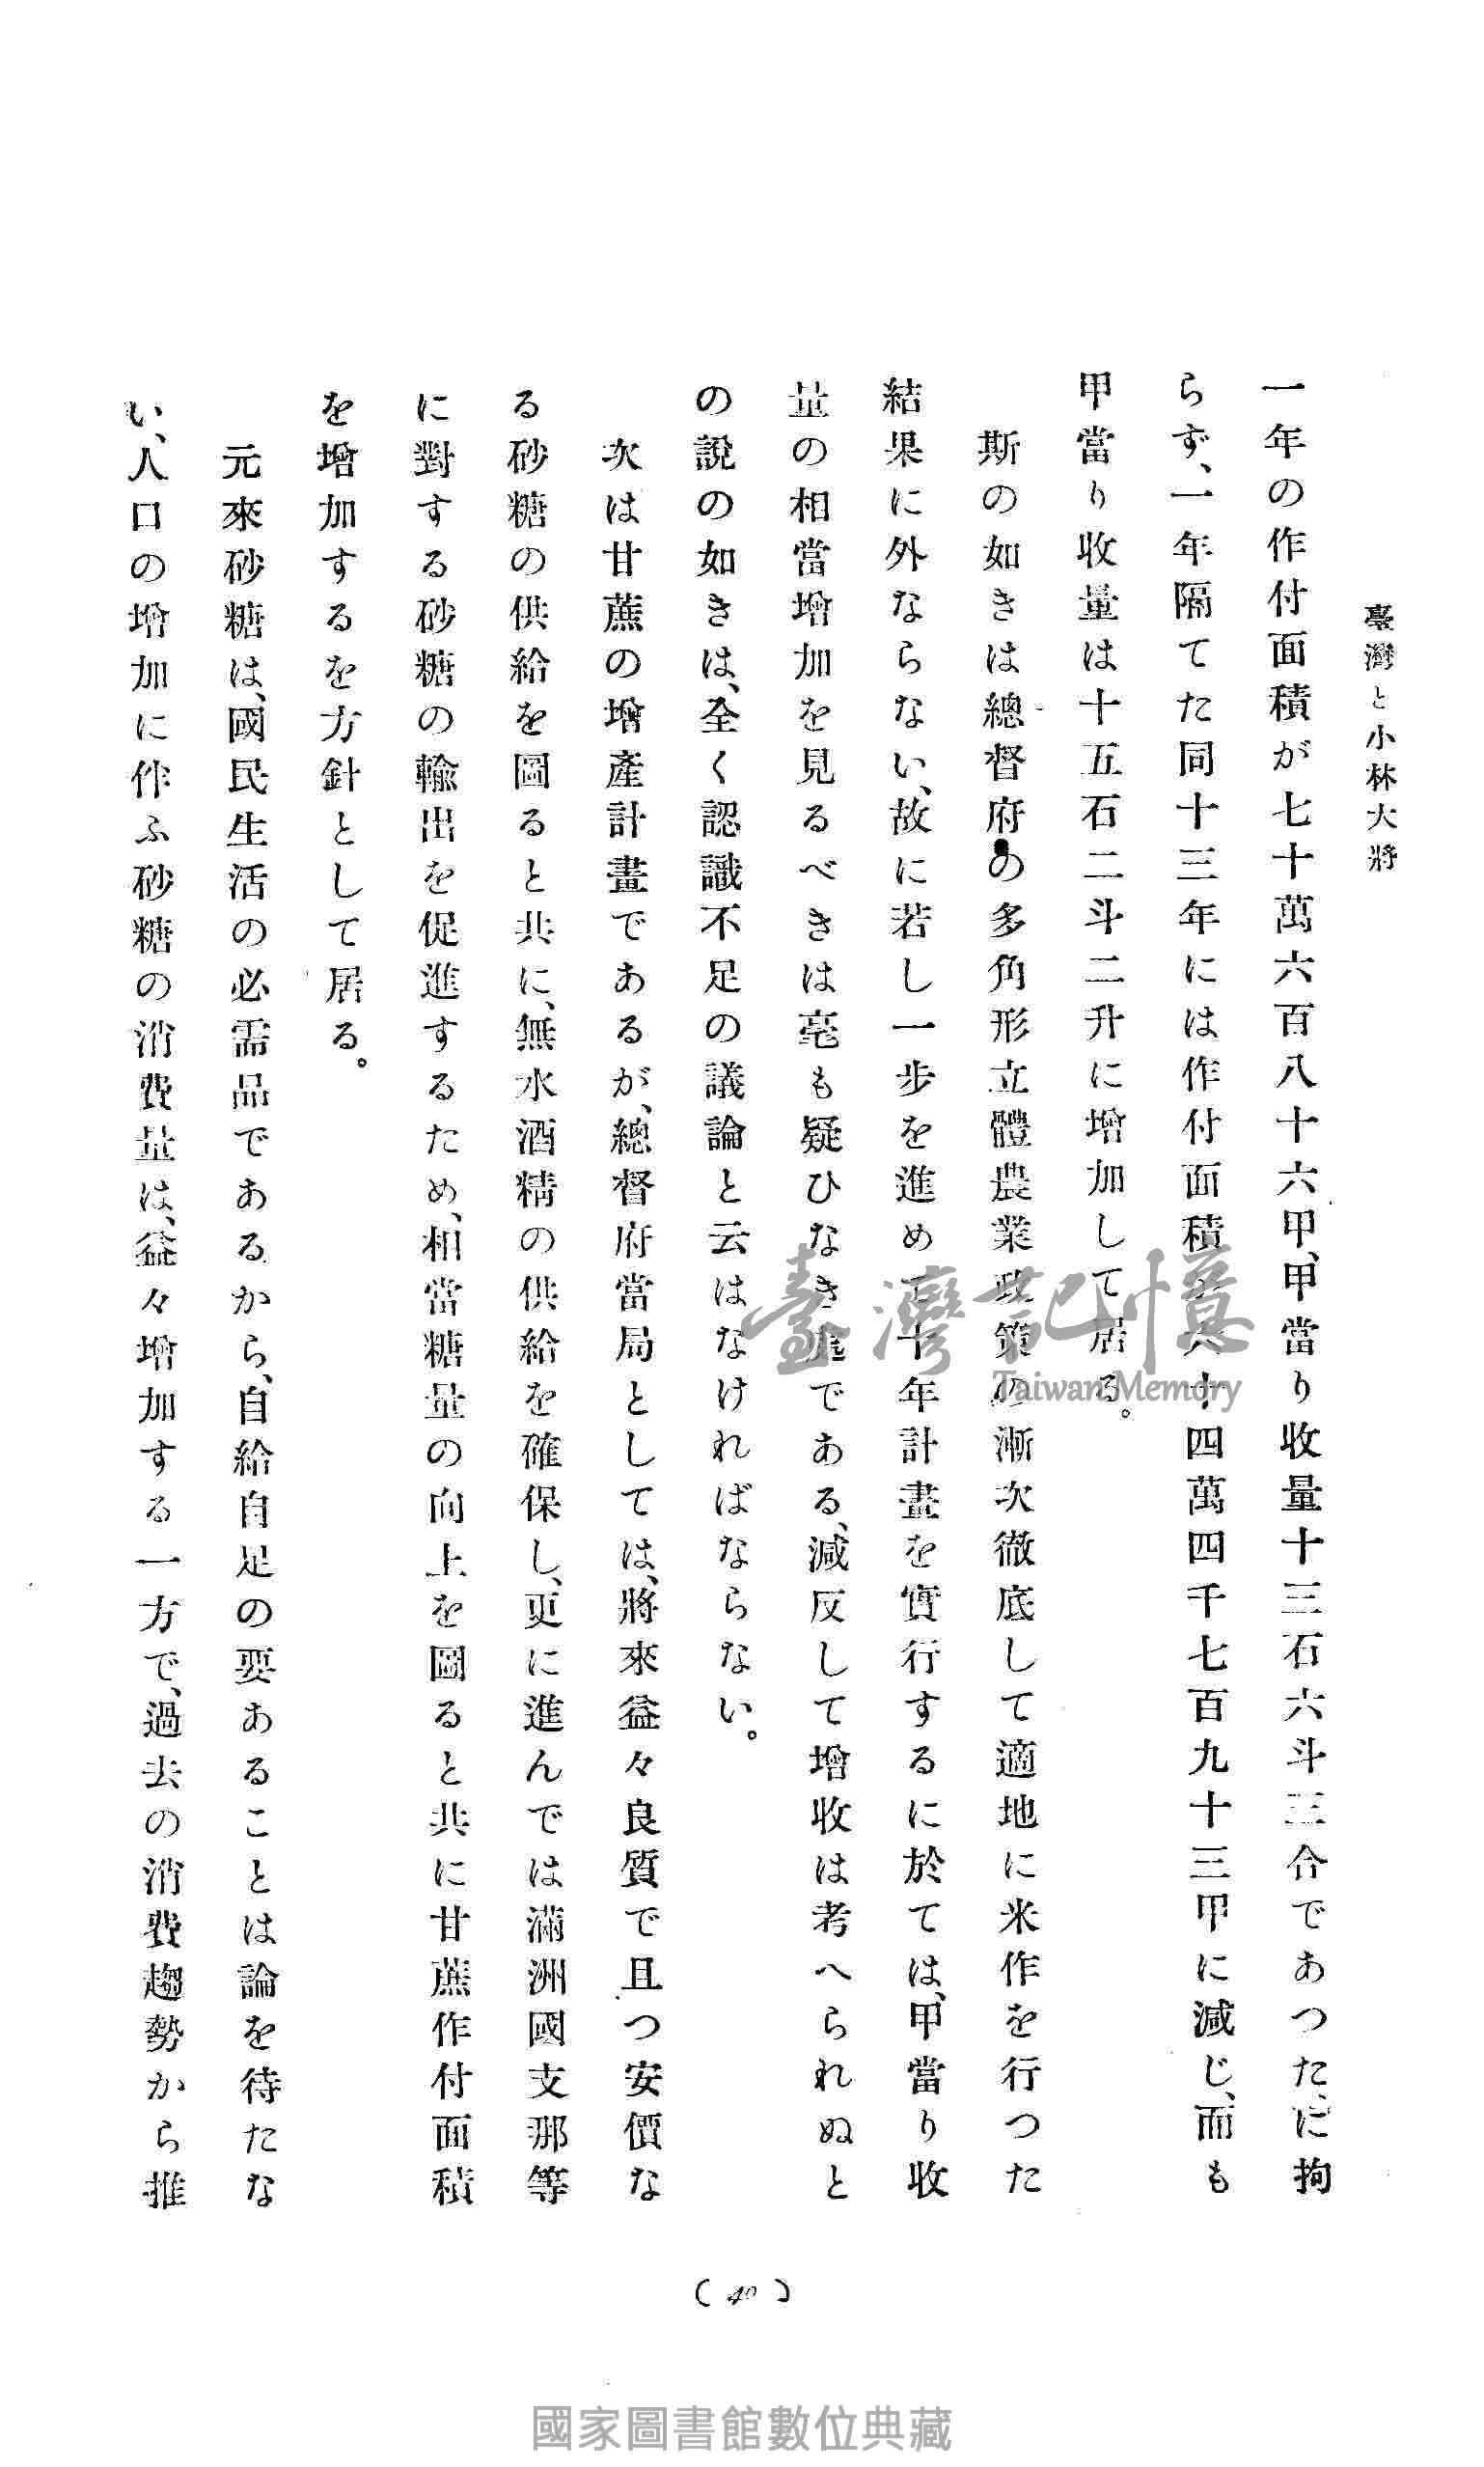 臺灣と小林大將
一年の作付面積が七十萬六百八十六甲、甲當り收量十三石六斗三合であつた、に拘
らず、一年隔てた同十三年には作付面積六十四萬四千七百九十三甲に減じ、而も
甲當り收量は十五石二斗二升に增加して居る。
斯の如きは總督府の多角形立體農業政策の漸次徹底して適地に米作を行つた
結果に外ならない、故に若し一步を進めて十年計畫を實行するに於ては、甲當り收
量の相當增加を見るべきは毫も疑ひなき處である、減反して增收は考へられぬと
の說の如きは、全く認識不足の議論と云はなければならない。
次は甘蔗の增產計畫であるが、總督府當局としては、將來益々良質で且つ安價な
る砂糖の供給を圖ると共に、無水酒精の供給を確保し、更に進んでは滿洲國支那等
に對する砂糖の輸出を促進するため、相當糖量の向上を圖ると共に甘蔗作付面積
を增加するを方針として居る。
元來砂糖は、國民生活の必需品であるから、自給自足の要あることは論を待たな
い、人口の增加に伴ふ砂糖の消費量は、益々增加する一方で、過去の消費趨勢から推
(40)
臺灣記憶
Taiwan Memory
國家圖書館數位典藏